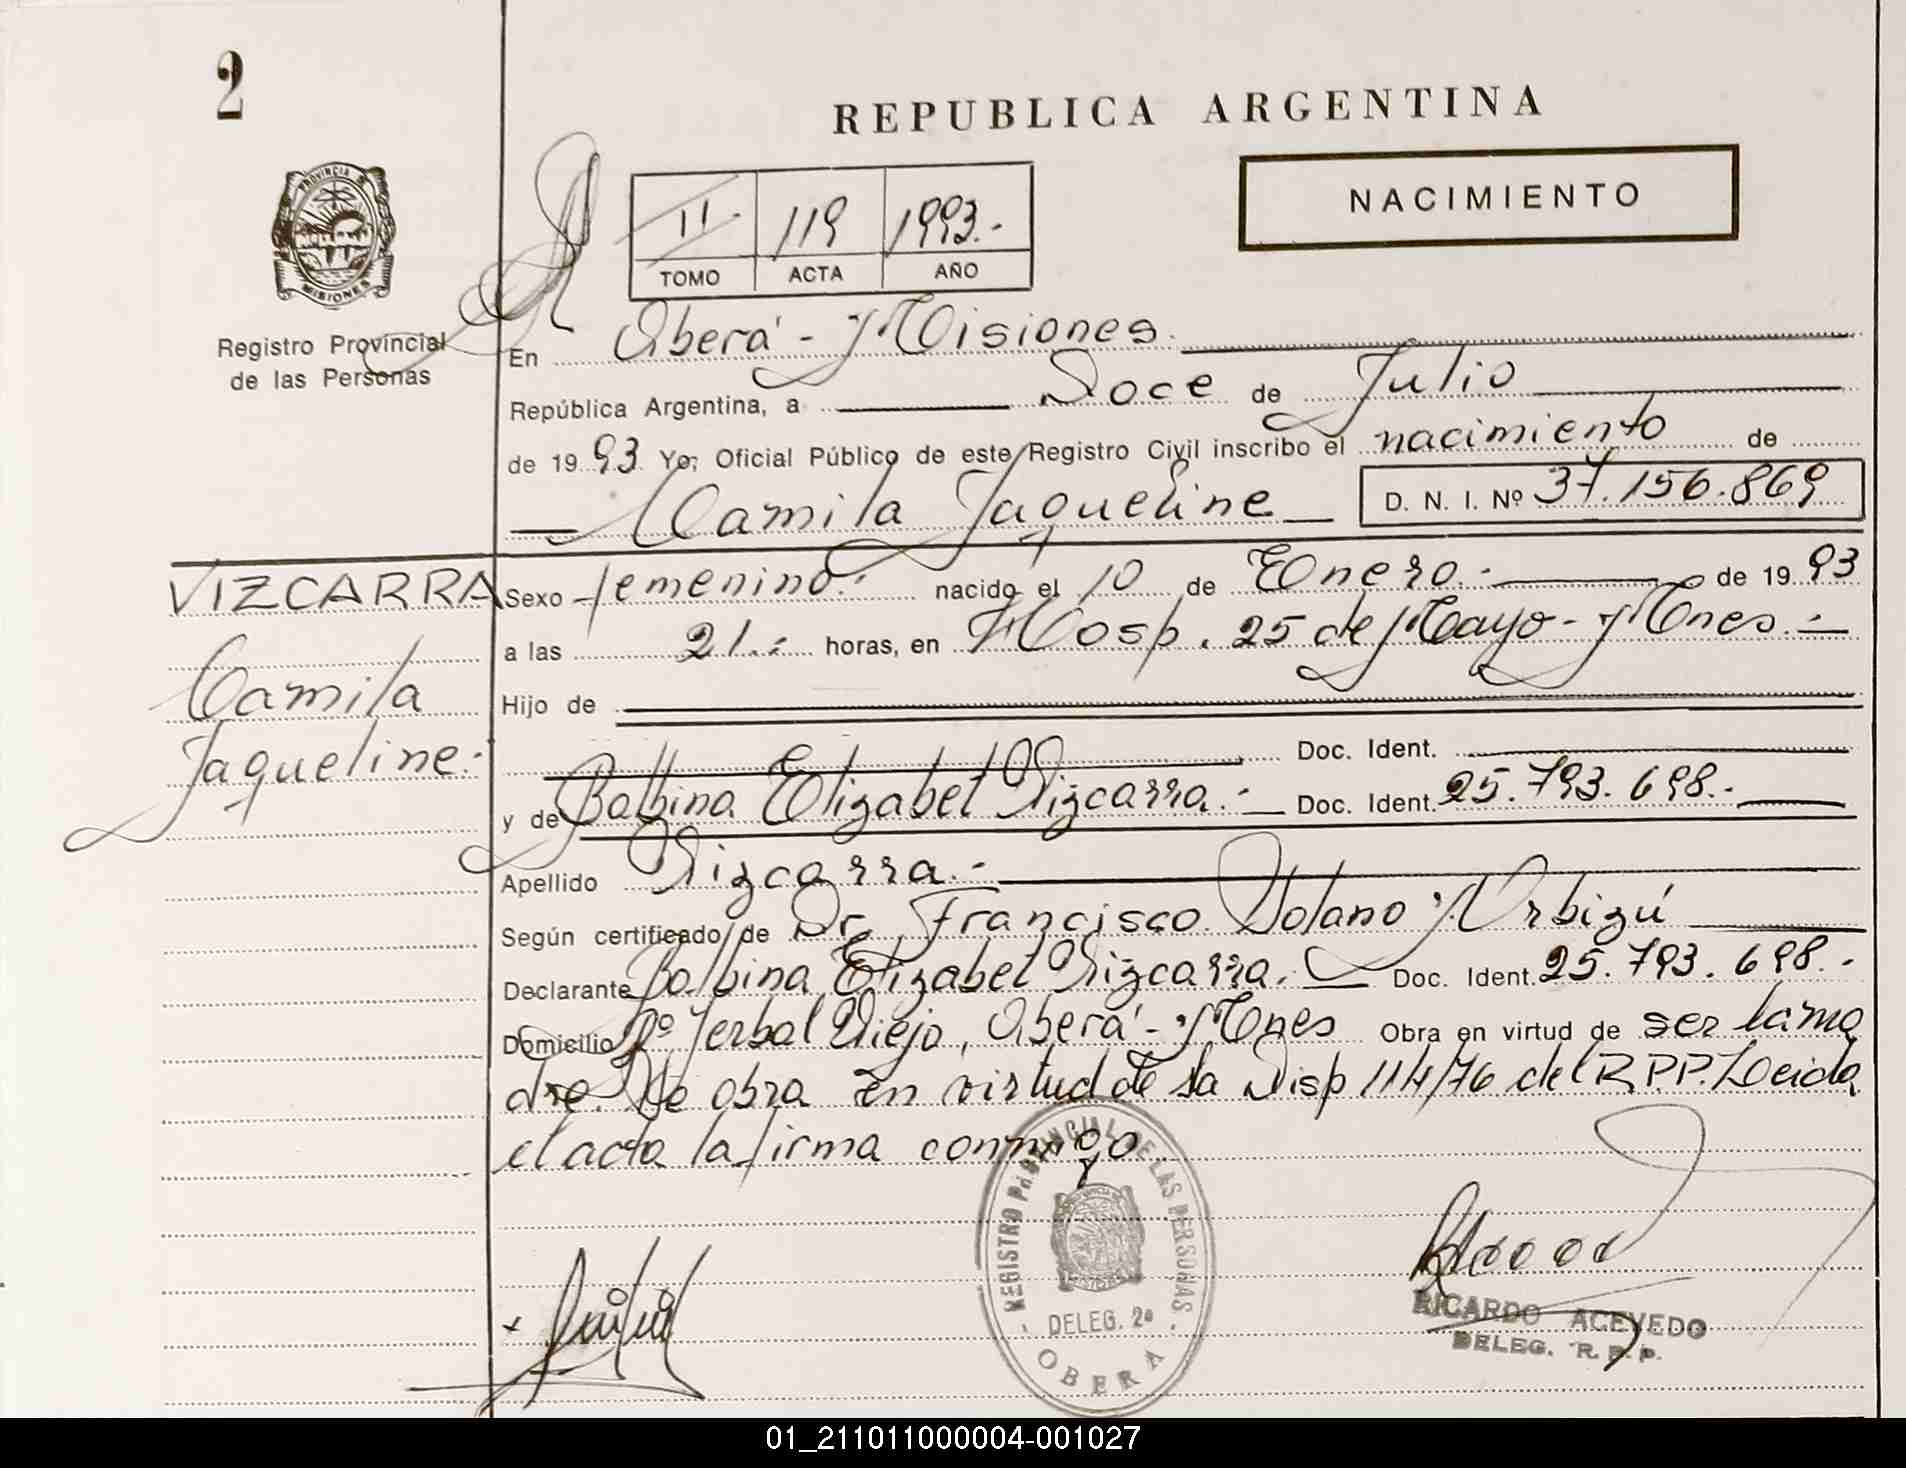 2
REPUBLICA ARGENTINA
PROVINCIA DE
MISIONES
Registro Provincial
de las Personas
11. 119 1993.-
TOMO ACTA AÑO
NACIMIENTO
En Oberá - Misiones.
República Argentina, a Doce de Julio
de 1993 Yo, Oficial Público de este Registro Civil inscribo el nacimiento de
Camila Jaqueline D. N. I. Nº 37.156.869
VIZCARRA
Camila
Jaqueline.-
Sexo femenino. nacido el 10 de Enero.- de 1993
a las 21.- horas, en Hosp. 25 de Mayo - Mnes.-
Hijo de
Doc. Ident.
y de Balbina Elizabet Vizcarra.- Doc. Ident. 25.793.698.-
Apellido Vizcarra.-
Según certificado de Dr. Francisco Solano Urbizú
Declarante Balbina Elizabet Vizcarra. Doc. Ident. 25.793.698.-
Domicilio Yerbal Viejo, Oberá - Mnes Obra en virtud de ser la ma
dre. Se obra en virtud de la Disp 114/76 del R.P.P. Leida
el acta la firma conmigo
REGISTRO PROVINCIAL DE LAS PERSONAS
DELEG. 2ª
OBERA
RICARDO ACEVEDO
DELEG. R. P. P.
01_211011000004-001027